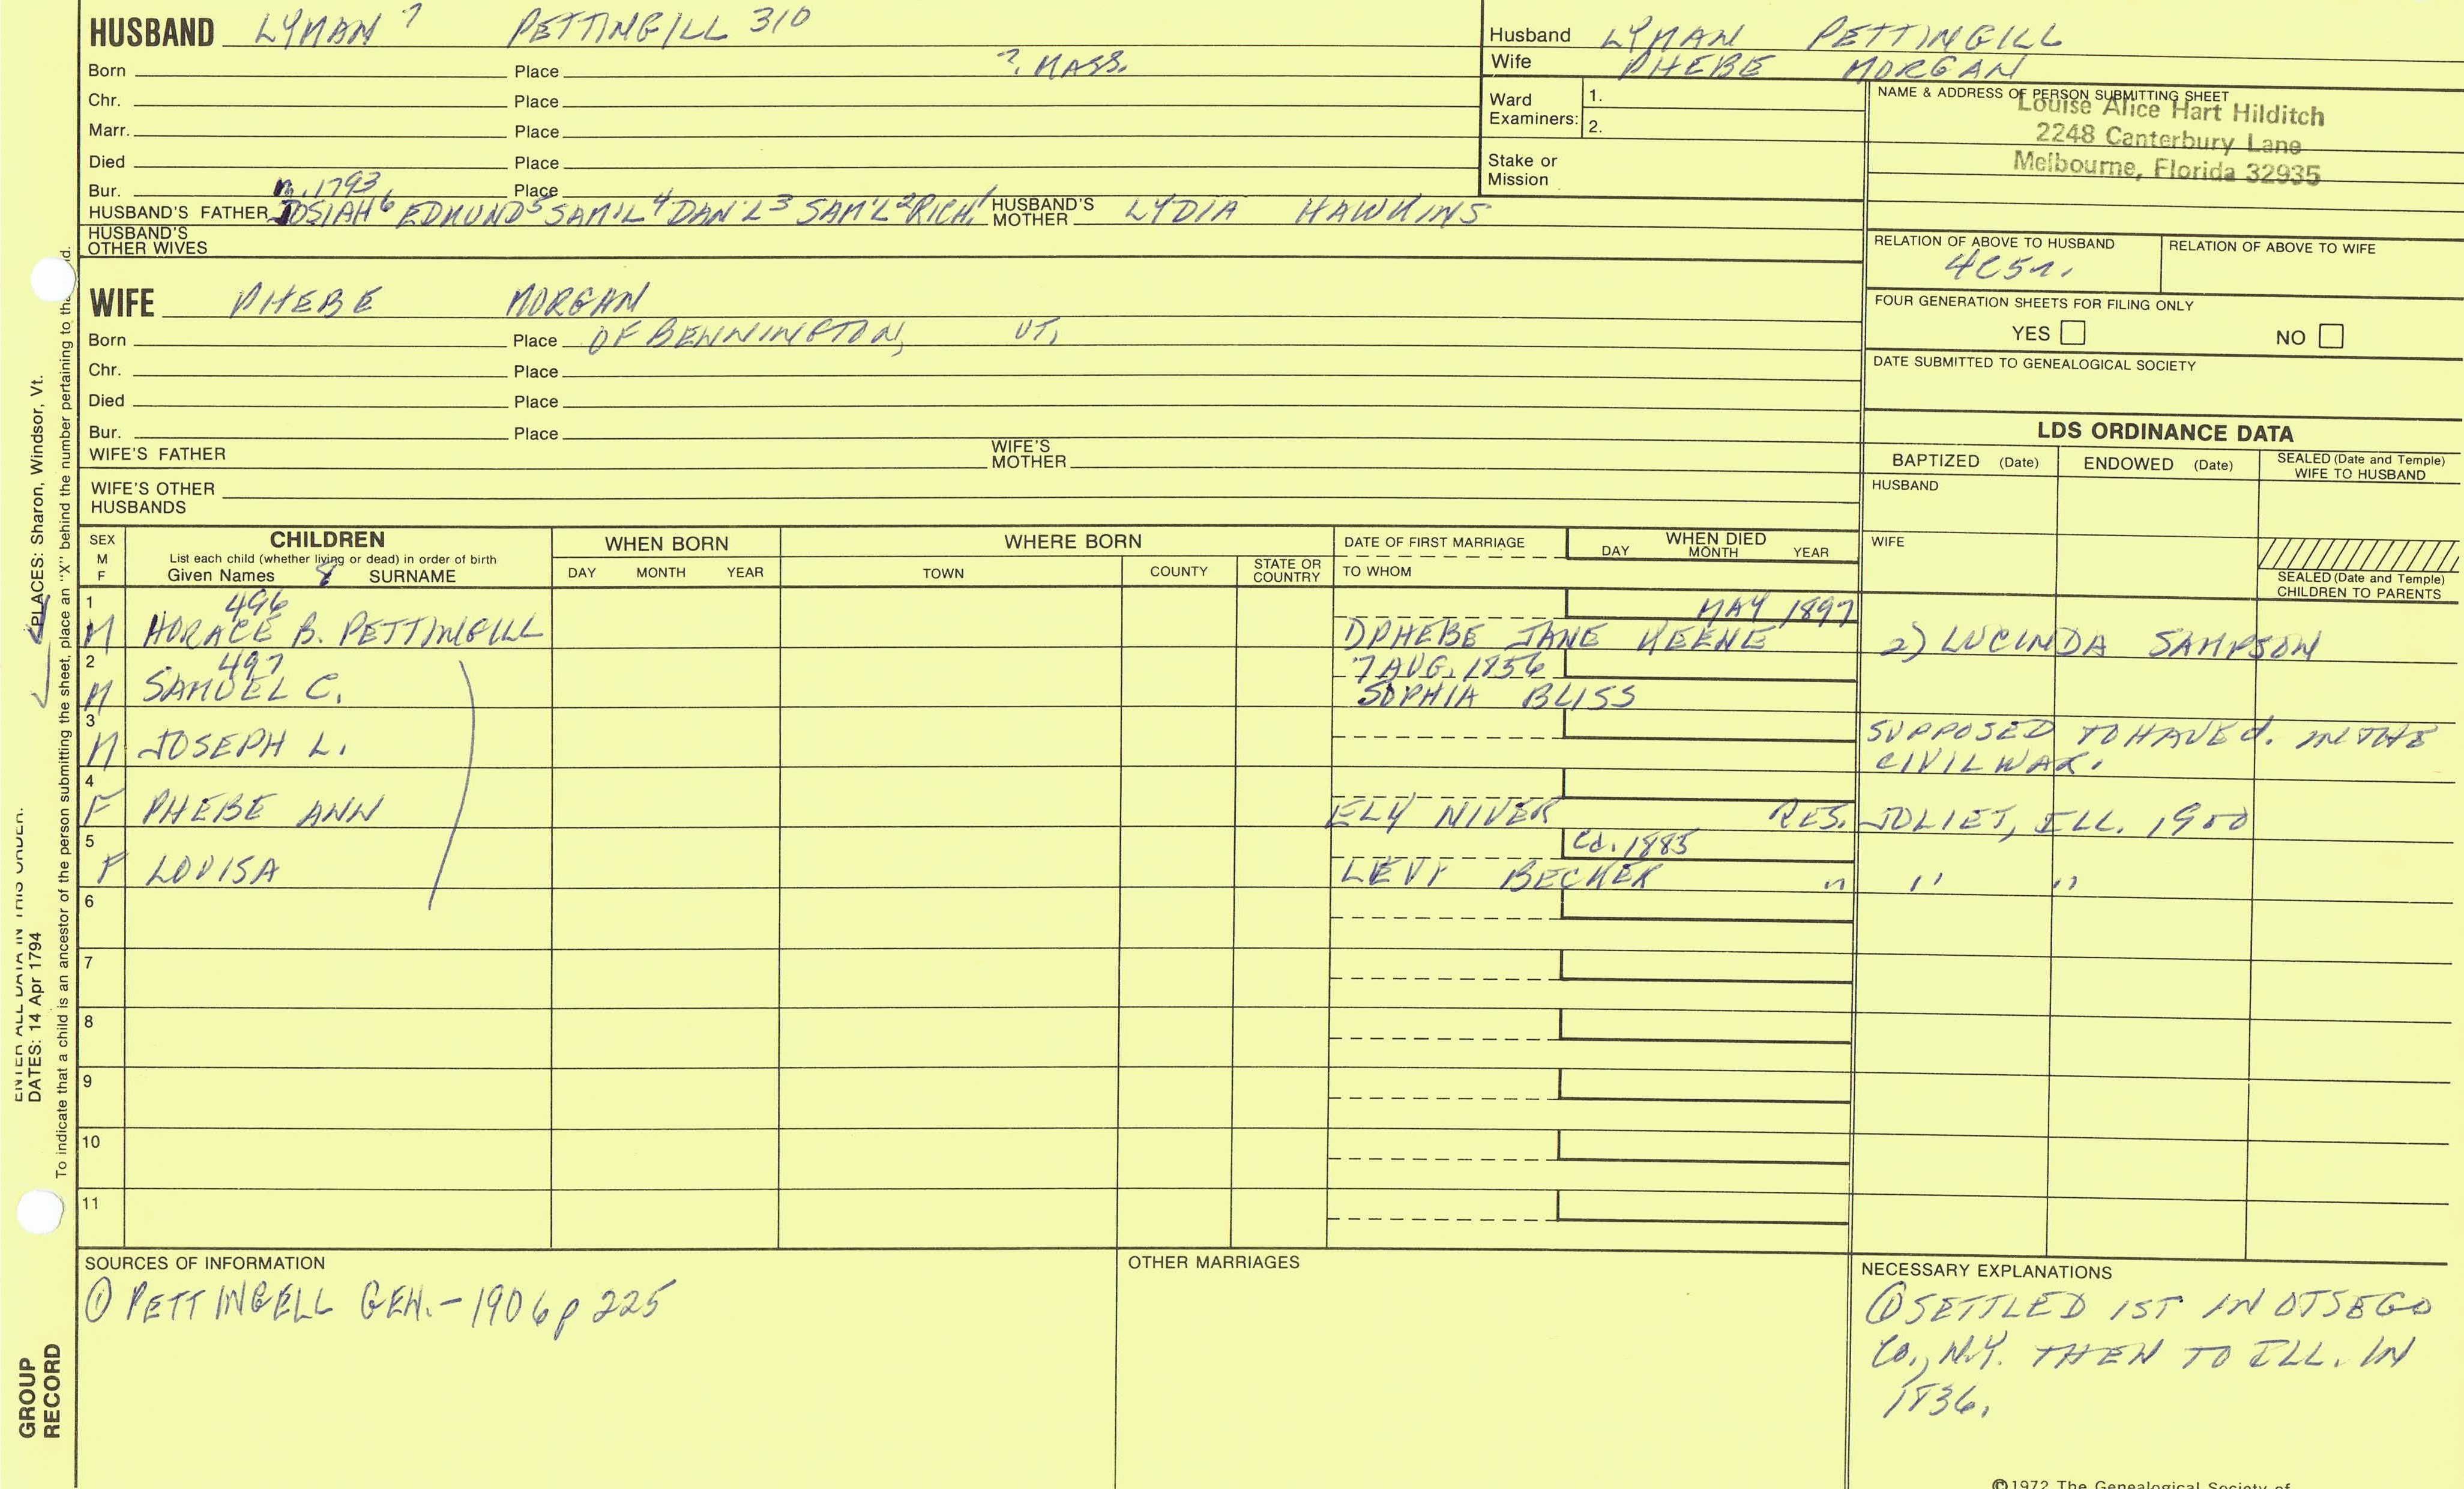 HUSBAND LYMAN 7 PETTINGILL 310
Born Place ?. MASS.
Chr. Place
Marr. Place
Died Place
Bur. Place
m. 1793
HUSBAND'S FATHER JOSIAH 6 EDMUND 5 SAM'L 4 DAN'L 3 SAM'L 2 RICH. 1 HUSBAND'S MOTHER LYDIA HAWKINS
HUSBAND'S OTHER WIVES
WIFE PHEBE MORGAN
Born Place OF BENNINGTON, VT.
Chr. Place
Died Place
Bur. Place
WIFE'S FATHER WIFE'S MOTHER
WIFE'S OTHER HUSBANDS
Husband LYMAN PETTINGILL
Wife PHEBE MORGAN
Ward Examiners: 1.
2.
Stake or Mission
NAME & ADDRESS OF PERSON SUBMITTING SHEET
Louise Alice Hart Hilditch
2248 Canterbury Lane
Melbourne, Florida 32935
RELATION OF ABOVE TO HUSBAND RELATION OF ABOVE TO WIFE
4C5r.
FOUR GENERATION SHEETS FOR FILING ONLY
YES NO
DATE SUBMITTED TO GENEALOGICAL SOCIETY
LDS ORDINANCE DATA
BAPTIZED (Date) ENDOWED (Date) SEALED (Date and Temple) WIFE TO HUSBAND
HUSBAND
WIFE
SEALED (Date and Temple) CHILDREN TO PARENTS
SEX M F
CHILDREN
List each child (whether living or dead) in order of birth
Given Names 8 SURNAME
WHEN BORN
DAY MONTH YEAR
WHERE BORN
TOWN COUNTY STATE OR COUNTRY
DATE OF FIRST MARRIAGE
TO WHOM
WHEN DIED
DAY MONTH YEAR
1 496 MAY 1897
M HORACE B. PETTINGILL 1) PHEBE JANE KEENE 2) LUCINDA SAMPSON
2 497 7 AUG. 1856
M SAMUEL C. SOPHIA BLISS
3 SUPPOSED TO HAVE d. IN THE
M JOSEPH L. CIVIL WAR.
4
F PHEBE ANN ELY NIVER RES. JOLIET, ILL. 1900
5 Cd. 1885
F LOUISA LEVI BECKER " " "
6
7
8
9
10
11
SOURCES OF INFORMATION
① PETTINGELL GEN. - 1906 p 225
OTHER MARRIAGES
NECESSARY EXPLANATIONS
① SETTLED 1ST IN OTSEGO
CO., N.Y. THEN TO ILL. IN
1836.
©1972 The Genealogical Society of
ENTER ALL DATA IN THIS ORDER:
DATES: 14 Apr 1794
PLACES: Sharon, Windsor, Vt.
To indicate that a child is an ancestor of the person submitting the sheet, place an "X" behind the number pertaining to the
GROUP
RECORD